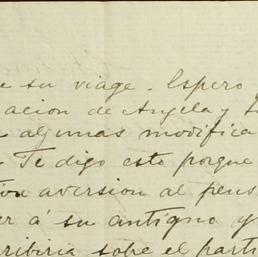 e su viage. Espero
acion de Angela y
algunas modifica
Te digo esto porque
aversion al pens
er á su antiguo y
ribiria sobre el parti